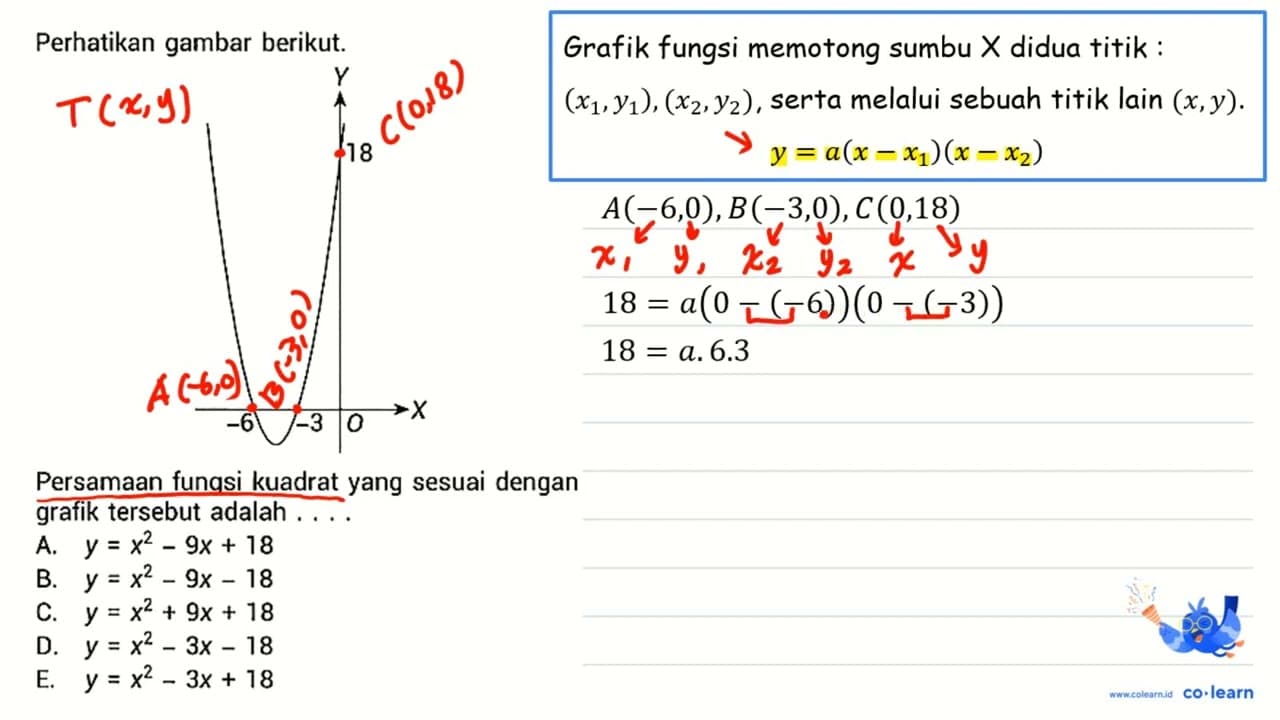 Perhatikan gambar berikut.
T(x,y)
Y
C(0,18)
18
A(-6,0)
B(-3,0)
-6
-3
O
X
Persamaan fungsi kuadrat yang sesuai dengan
grafik tersebut adalah . . . .
A. y = x² – 9x + 18
B. y = x² – 9x – 18
C. y = x² + 9x + 18
D. y = x² – 3x – 18
E. y = x² – 3x + 18
Grafik fungsi memotong sumbu X didua titik :
(x₁, y₁), (x₂, y₂), serta melalui sebuah titik lain (x, y).
y = a(x − x₁)(x − x₂)
A(−6,0), B(−3,0), C(0,18)
x₁ y₁ x₂ y₂ x y
18 = a(0 − (−6))(0 − (−3))
18 = a. 6.3
www.colearn.id co·learn